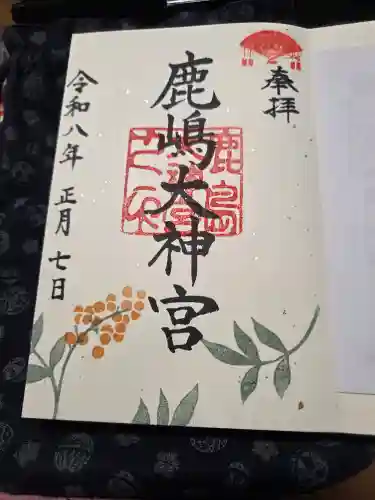 奉拝
鹿嶋大神宮
令和八年 正月 七日